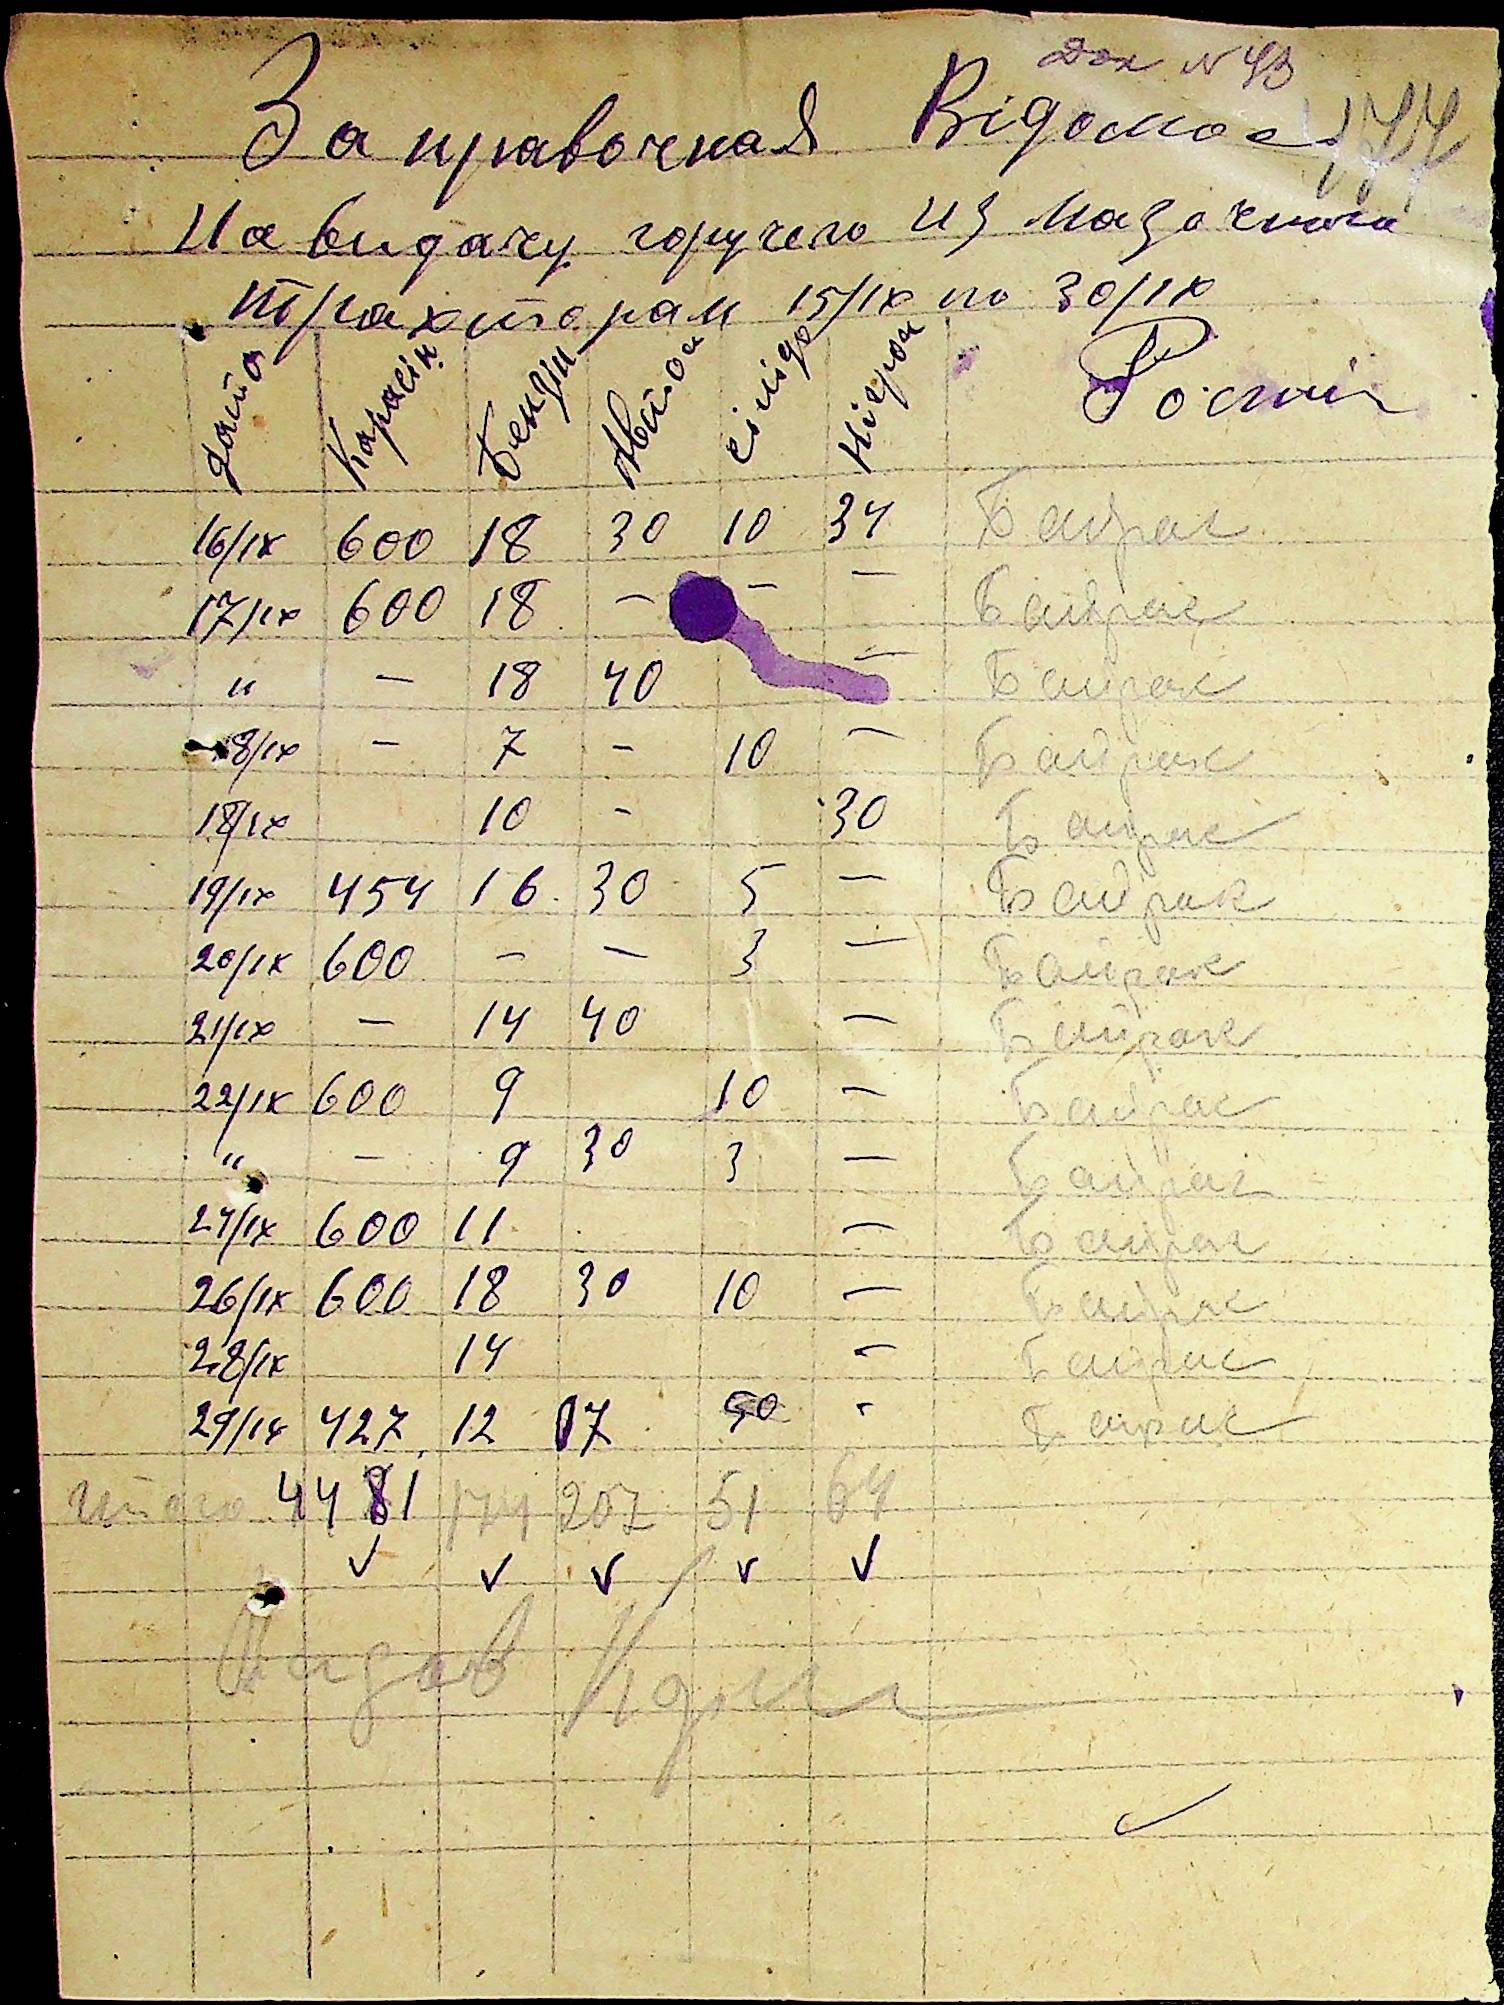 Док № 43
477
Заправочная Відомос
На видачу горучего из мазочного
трахторам 15/IX по 30/IX
дата Карасін Бензин Автол солідо Нігрол Роспис
16/IX 600 18 30 10 34 Байрак
17/IX 600 18 – – – Байрак
" – 18 40 – Байрак
18/IX – 7 – 10 – Байрак
18/IX 10 – 30 Байрак
19/IX 454 16 30 5 – Байрак
20/IX 600 – – 3 – Байрак
21/IX – 14 40 – Байрак
22/IX 600 9 10 – Байрак
" – 9 30 3 – Байрак
24/IX 600 11 – Байрак
26/IX 600 18 30 10 – Байрак
28/IX 14 – Байрак
29/IX 427 12 17 - Байрак
Итого 4481 174 207 51 64